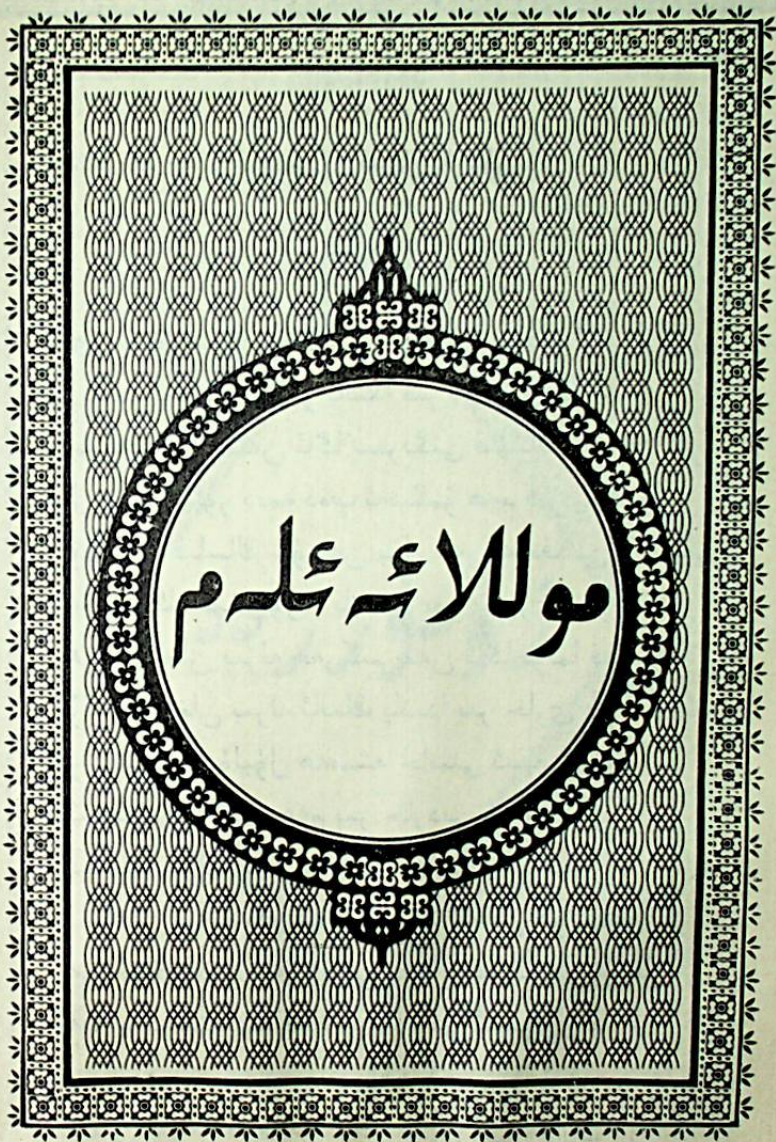 موللا ئەئلەم